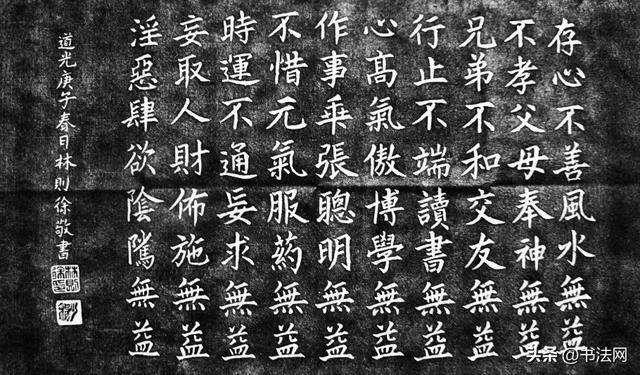 存心不善風水無益
不孝父母奉神無益
兄弟不和交友無益
行止不端讀書無益
心髙氣傲博學無益
作事乖張聰明無益
不惜元氣服葯無益
時運不通妄求無益
妄取人財佈施無益
淫惡肆欲陰騭無益
道光庚子春日林則徐敬書
头条@书法网